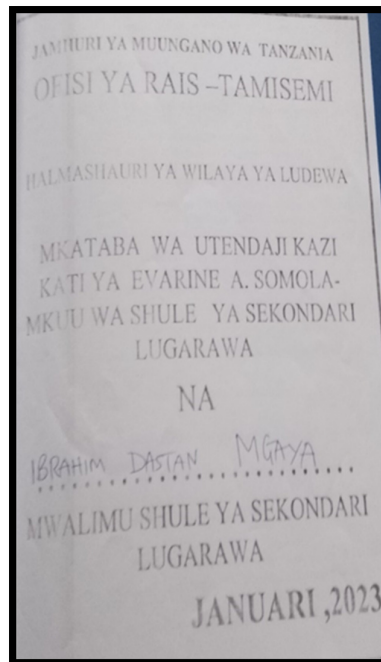 JAMHURI YA MUUNGANO WA TANZANIA
OFISI YA RAIS –TAMISEMI
HALMASHAURI YA WILAYA YA LUDEWA
MKATABA WA UTENDAJI KAZI
KATI YA EVARINE A. SOMOLA-
MKUU WA SHULE YA SEKONDARI
LUGARAWA
NA
IBRAHIM DASTAN MGAYA
MWALIMU SHULE YA SEKONDARI
LUGARAWA
JANUARI ,2023